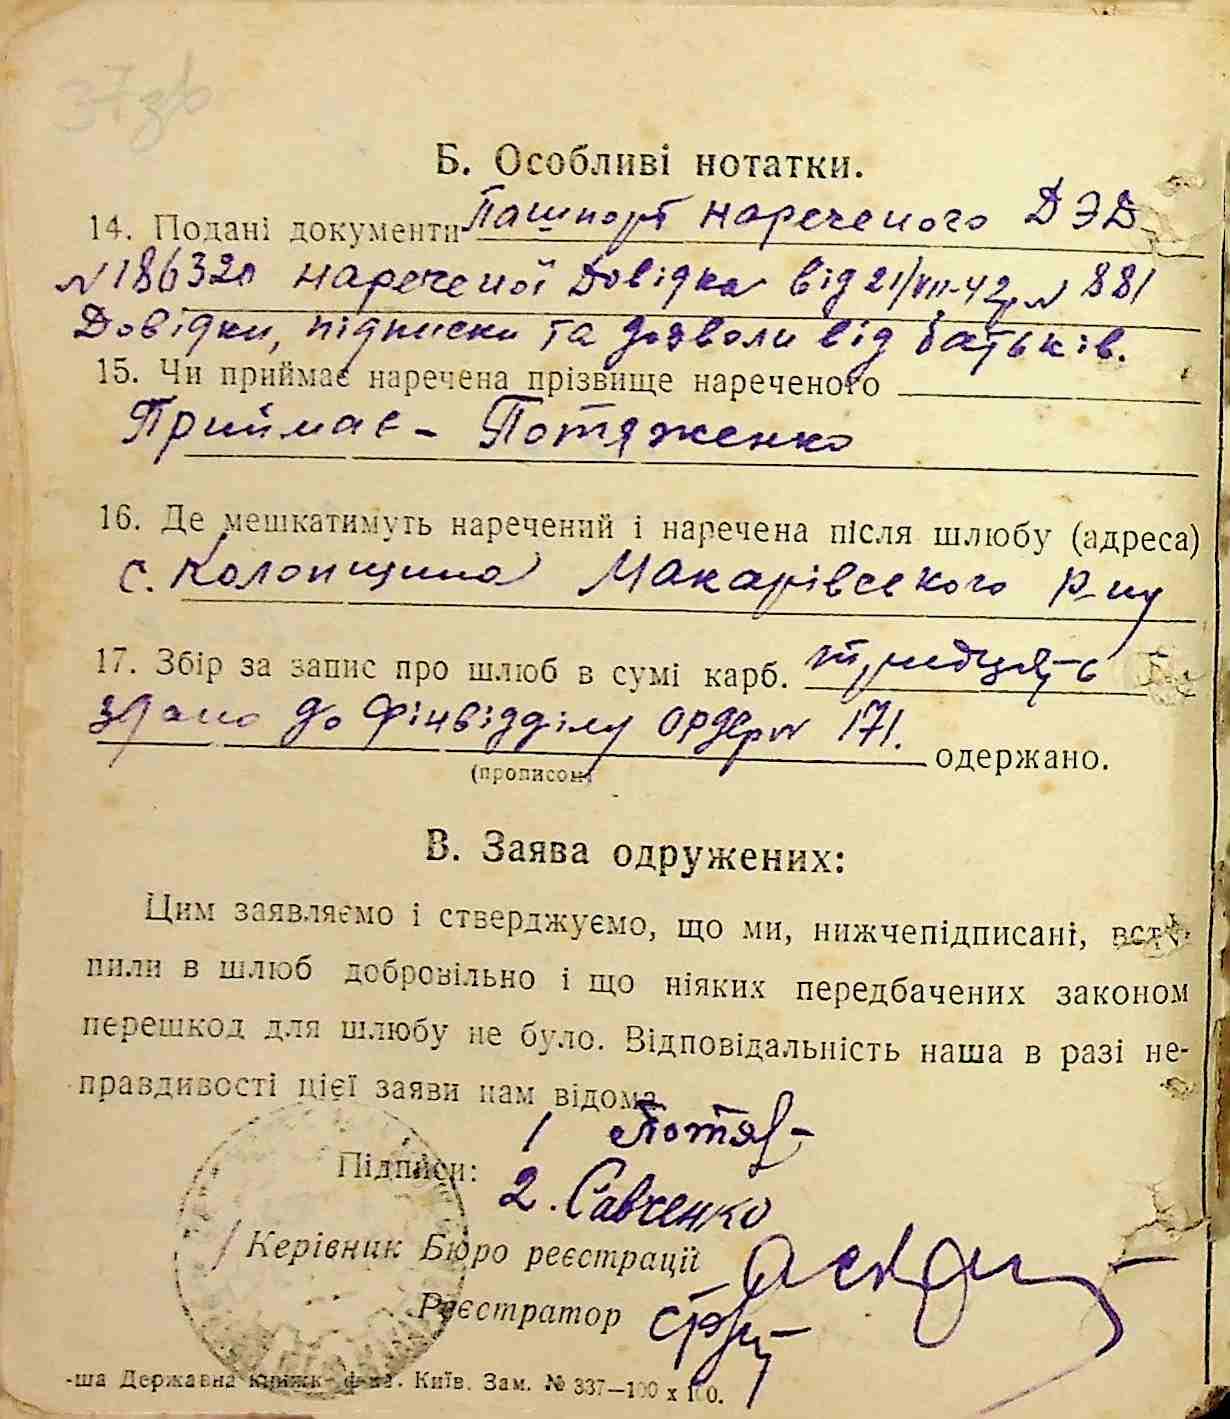 37зв
Б. Особливі нотатки.
14. Подані документи Пашпорт нареченого ДЭД
№ 186320 нареченої Довідка від 21/VII-42 р № 881
Довідки, підписки та дозволи від батьків.
15. Чи приймає наречена прізвище нареченого
Приймає - Потяженко
16. Де мешкатимуть наречений і наречена після шлюбу (адреса)
с. Колонщина Макарівського р-ну
17. Збір за запис про шлюб в сумі карб. тридцять
здано до Фінвідділу ордер № 171. одержано.
(прописом)
В. Заява одружених:
Цим заявляємо і стверджуємо, що ми, нижчепідписані, всту-
пили в шлюб добровільно і що ніяких передбачених законом
перешкод для шлюбу не було. Відповідальність наша в разі не-
правдивості цієї заяви нам відома
1 Потяж-
Підписи:
2. Савченко
Керівник Бюро реєстрації
Реєстратор
-ша Державна книжк. ф-ка. Київ. Зам. № 337—100 х 100.